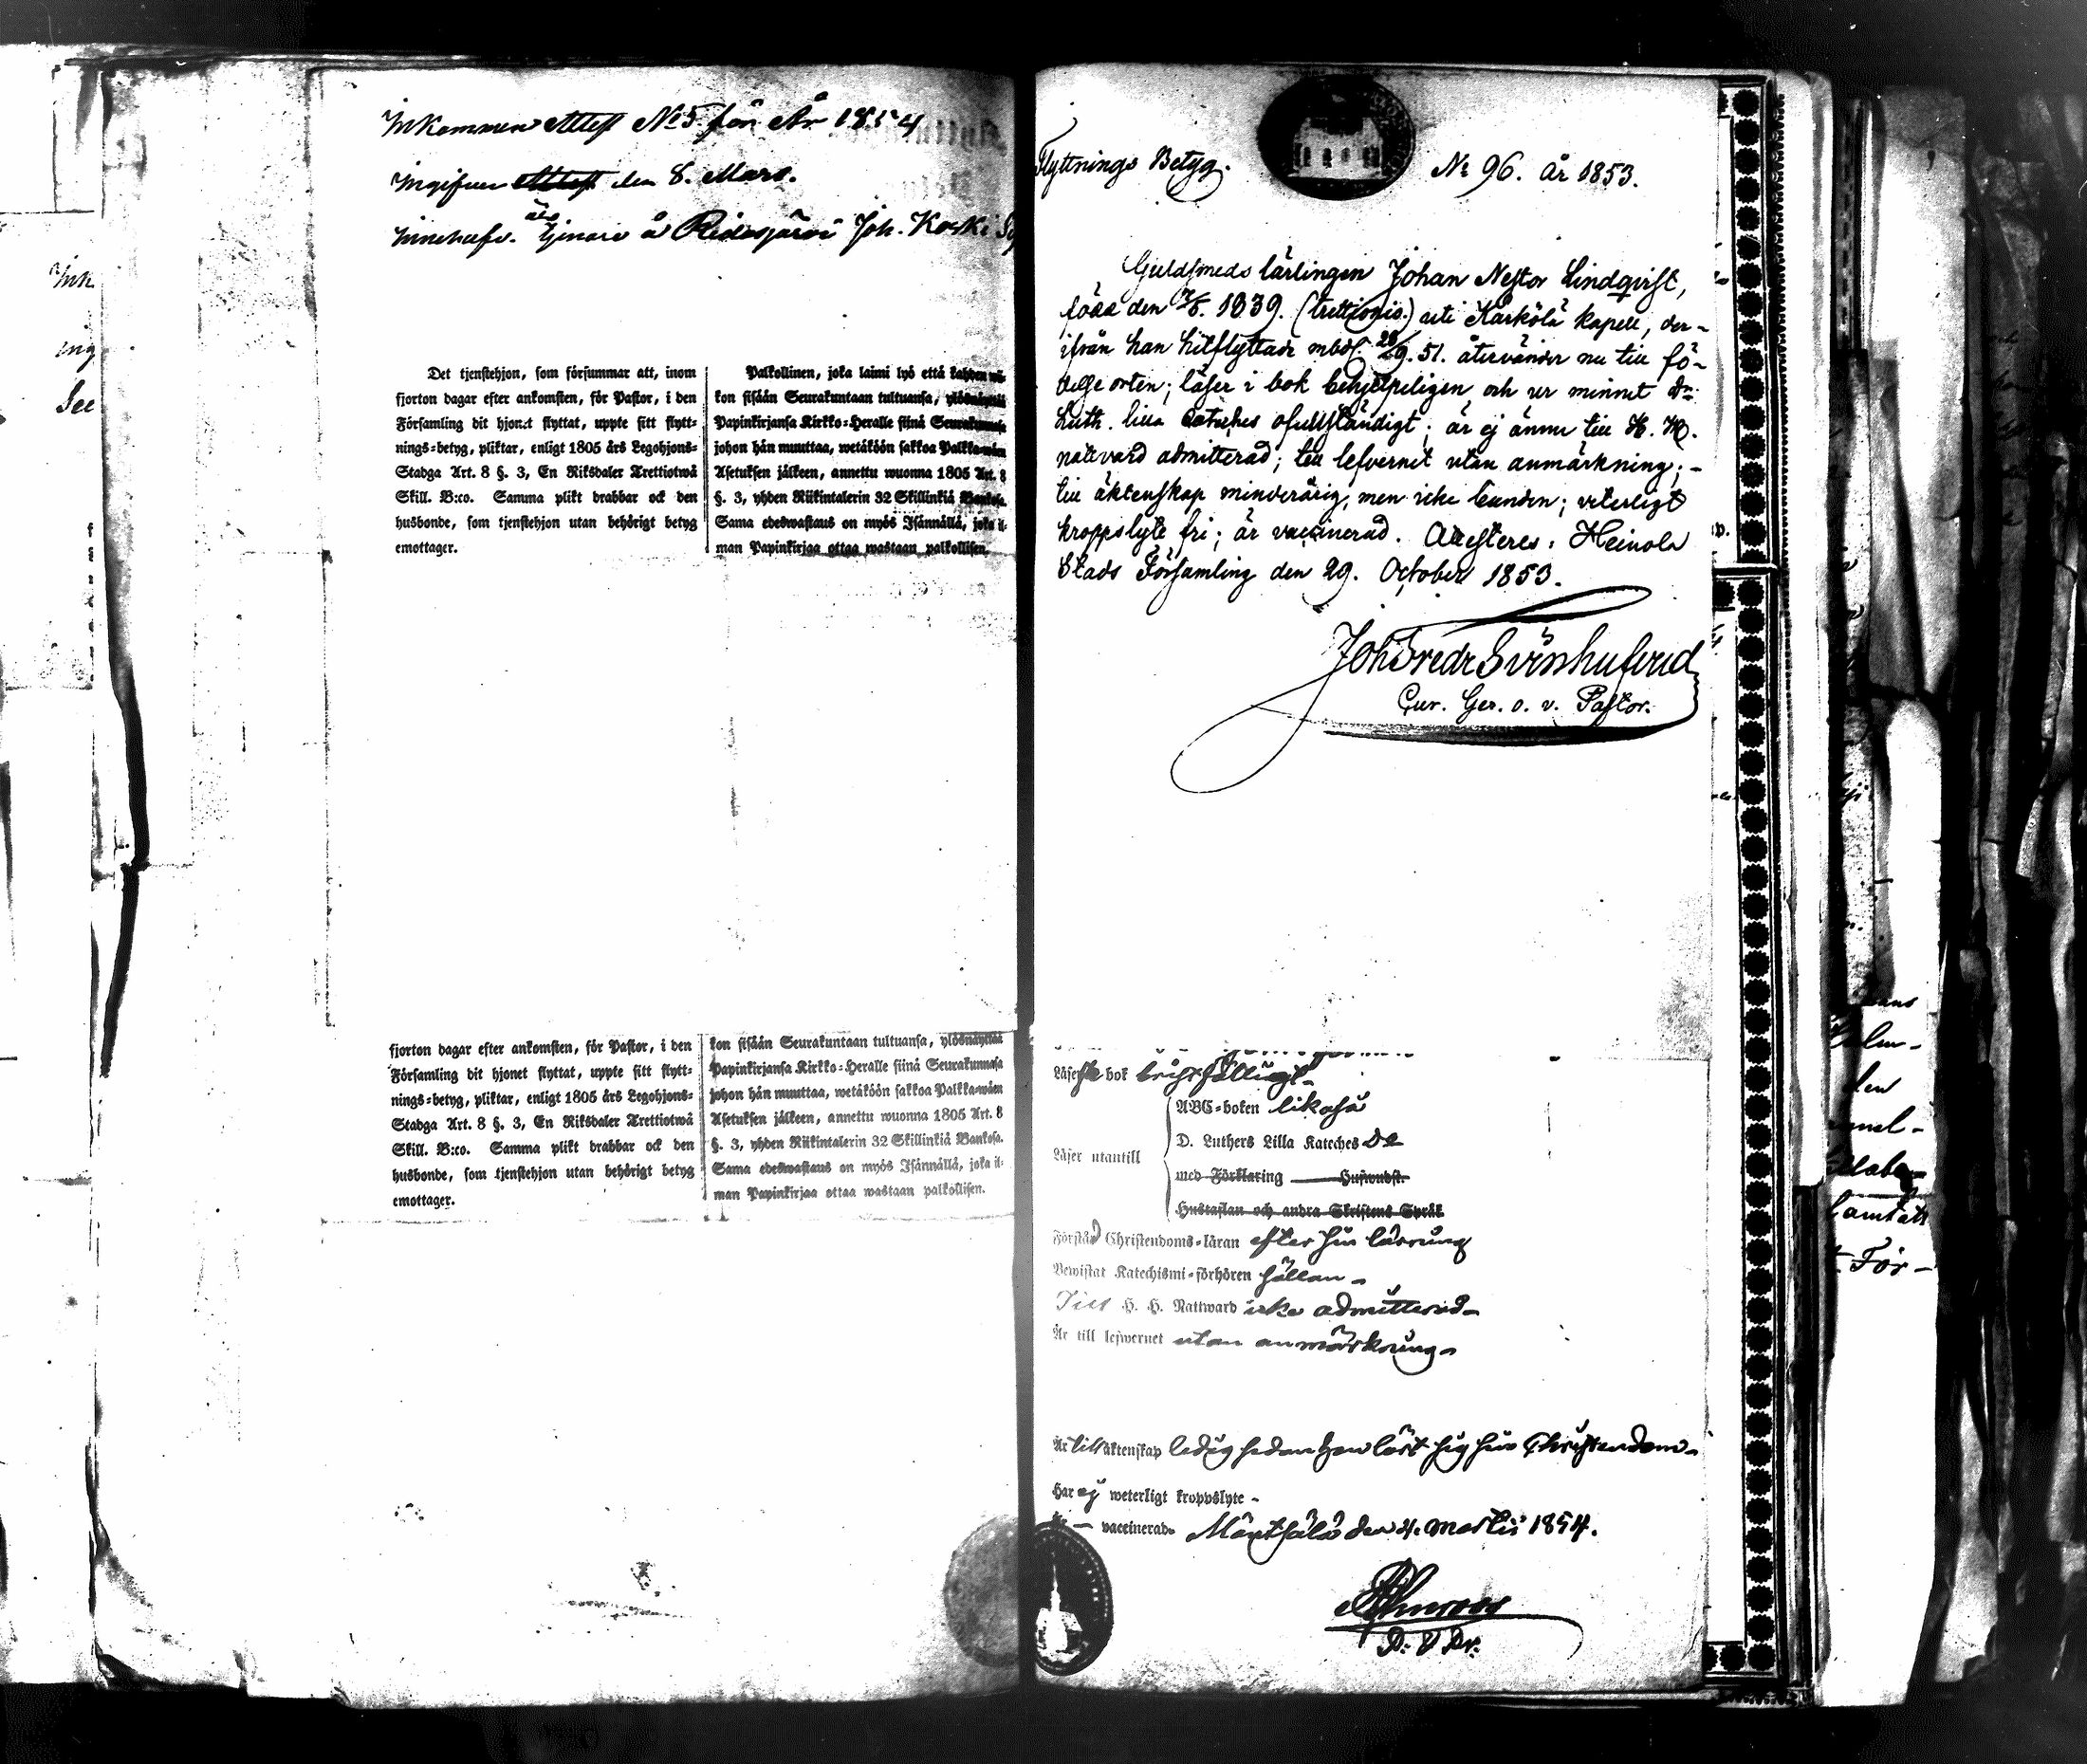 Inkommen Attest No 5 för År 1854
Ingifven Attest den 8. Mars.
Innehafv. tjenare å Ridasjärvi Joh. Koski
als
Det tjenstehjon, som försummar att, inom
fjorton dagar efter ankomsten, för Pastor, i den
Församling dit hjonet flyttat, uppte sitt flytt-
nings-betyg, pliktar, enligt 1805 års Legohjons-
Stadga Art. 8 §. 3, En Riksdaler Trettiotwå
Skill. B:co. Samma plikt drabbar ock den
husbonde, som tjenstehjon utan behörigt betyg
emottager.
Palkollinen, joka laimi lyö että kahden wii-
kon sisään Seurakuntaan tultuansa, ylösnäyttää
Papinkirjansa Kirkko-Heralle siinä Seurakunnasa
johon hän muuttaa, wetäköön sakkoa Palkka-wäen
Asetuksen jälkeen, annettu wuonna 1805 Art. 8
§. 3, yhden Riikintalerin 32 Skillinkiä Bankosa.
Sama edeswastaus on myös Isännällä, joka il-
man Papinkirjaa ottaa wastaan palkollisen.
fjorton dagar efter ankomsten, för Pastor, i den
Församling dit hjonet flyttat, uppte sitt flytt-
nings-betyg, pliktar, enligt 1805 års Legohjons-
Stadga Art. 8 §. 3, En Riksdaler Trettiotwå
Skill. B:co. Samma plikt drabbar ock den
husbonde, som tjenstehjon utan behörigt betyg
emottager.
kon sisään Seurakuntaan tultuansa, ylösnäyttää
Papinkirjansa Kirkko-Heralle siinä Seurakunnasa
johon hän muuttaa, wetäköön sakkoa Palkka-wäen
Asetuksen jälkeen, annettu wuonna 1805 Art. 8
§. 3, yhden Riikintalerin 32 Skillinkiä Bankosa.
Sama edeswastaus on myös Isännällä, joka il-
man Papinkirjaa ottaa wastaan palkollisen.
Flyttnings Betyg. No 96. År 1853.
Guldsmeds lärlingen Johan Nestor Lindqvist,
född den 7/8. 1839. (trettionio.) uti Kärkölä kapell, der-
ifrån han hitflyttade 9. 51. återvänder nu till fö-
delse orten; läser i bok behjelpeligen och ur minnet Dr
Luth. lilla Catches ofullständigt; är ej ännu till H. H.
nattvard admitterad; till lefvernet utan anmärkning; -
till äktenskap minderårig, men icke bunden; veterligt
kroppslyte fri; är vaccinerad. Attesteres: Heinola
Stads Församling den 29. October 1853.
Joh Fredr Svinhufvud
v. Pastor.
Läser bok
ABC-boken likaså
D. Luthers Lilla Kateches Do
Läser utantill
med Förklaring Huswudst.
Hustaflan och andra Skriftens Språk
Förstår Christendoms-läran efter sin lärrung
Bewistat Katechismi-förhören sällan -
Till H. H. Nattward icke admitterad -
Är till lefwernet utan anmärkning -
Är till äktenskap ledig sedan han lärt sig sin Christendom -
Har ej weterligt kroppslyte -
vaccinerad. Mäntsälä den 4. Martii 1854.